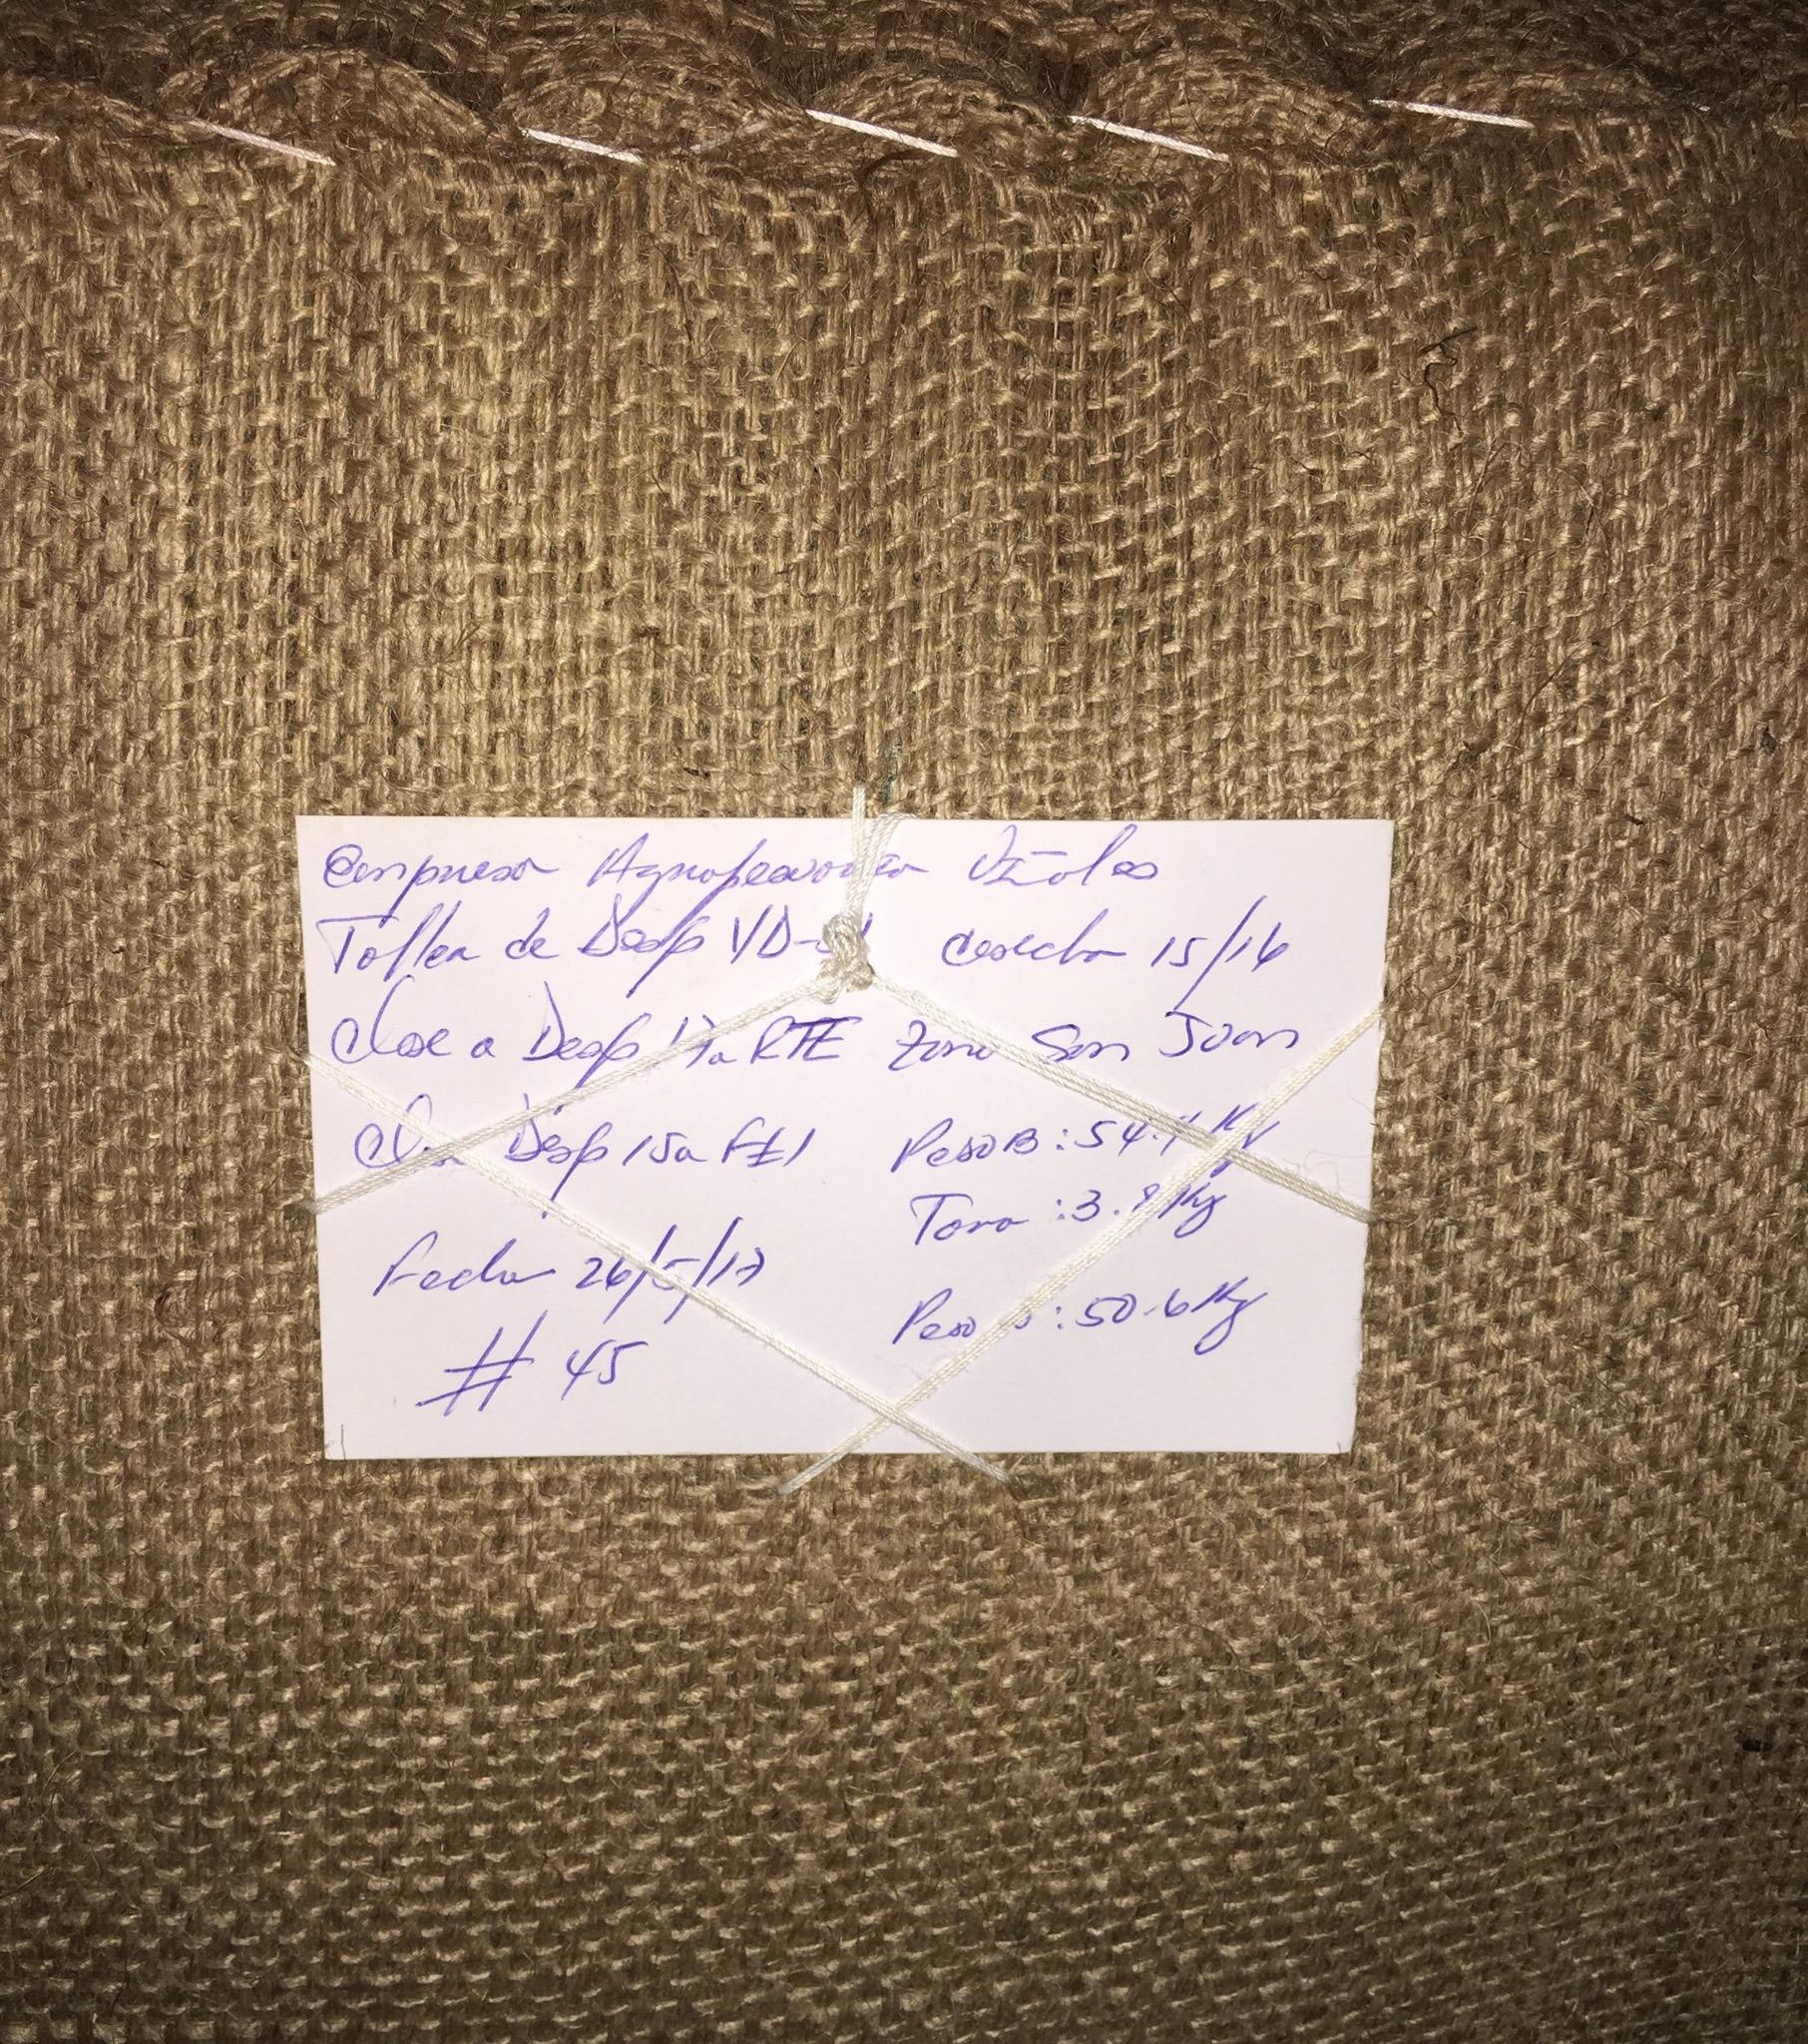 Empresa Agropecuaria Viñales
Taller de Desp VD- Cosecha 15/16
Clase a Desp 17a RTE Zona San Juan
Clase Desp 15a Peso B: 54. Kg
Tara : 3. Kg
Fecha 26/5/17
Peso : 50.6 Kg
# 45